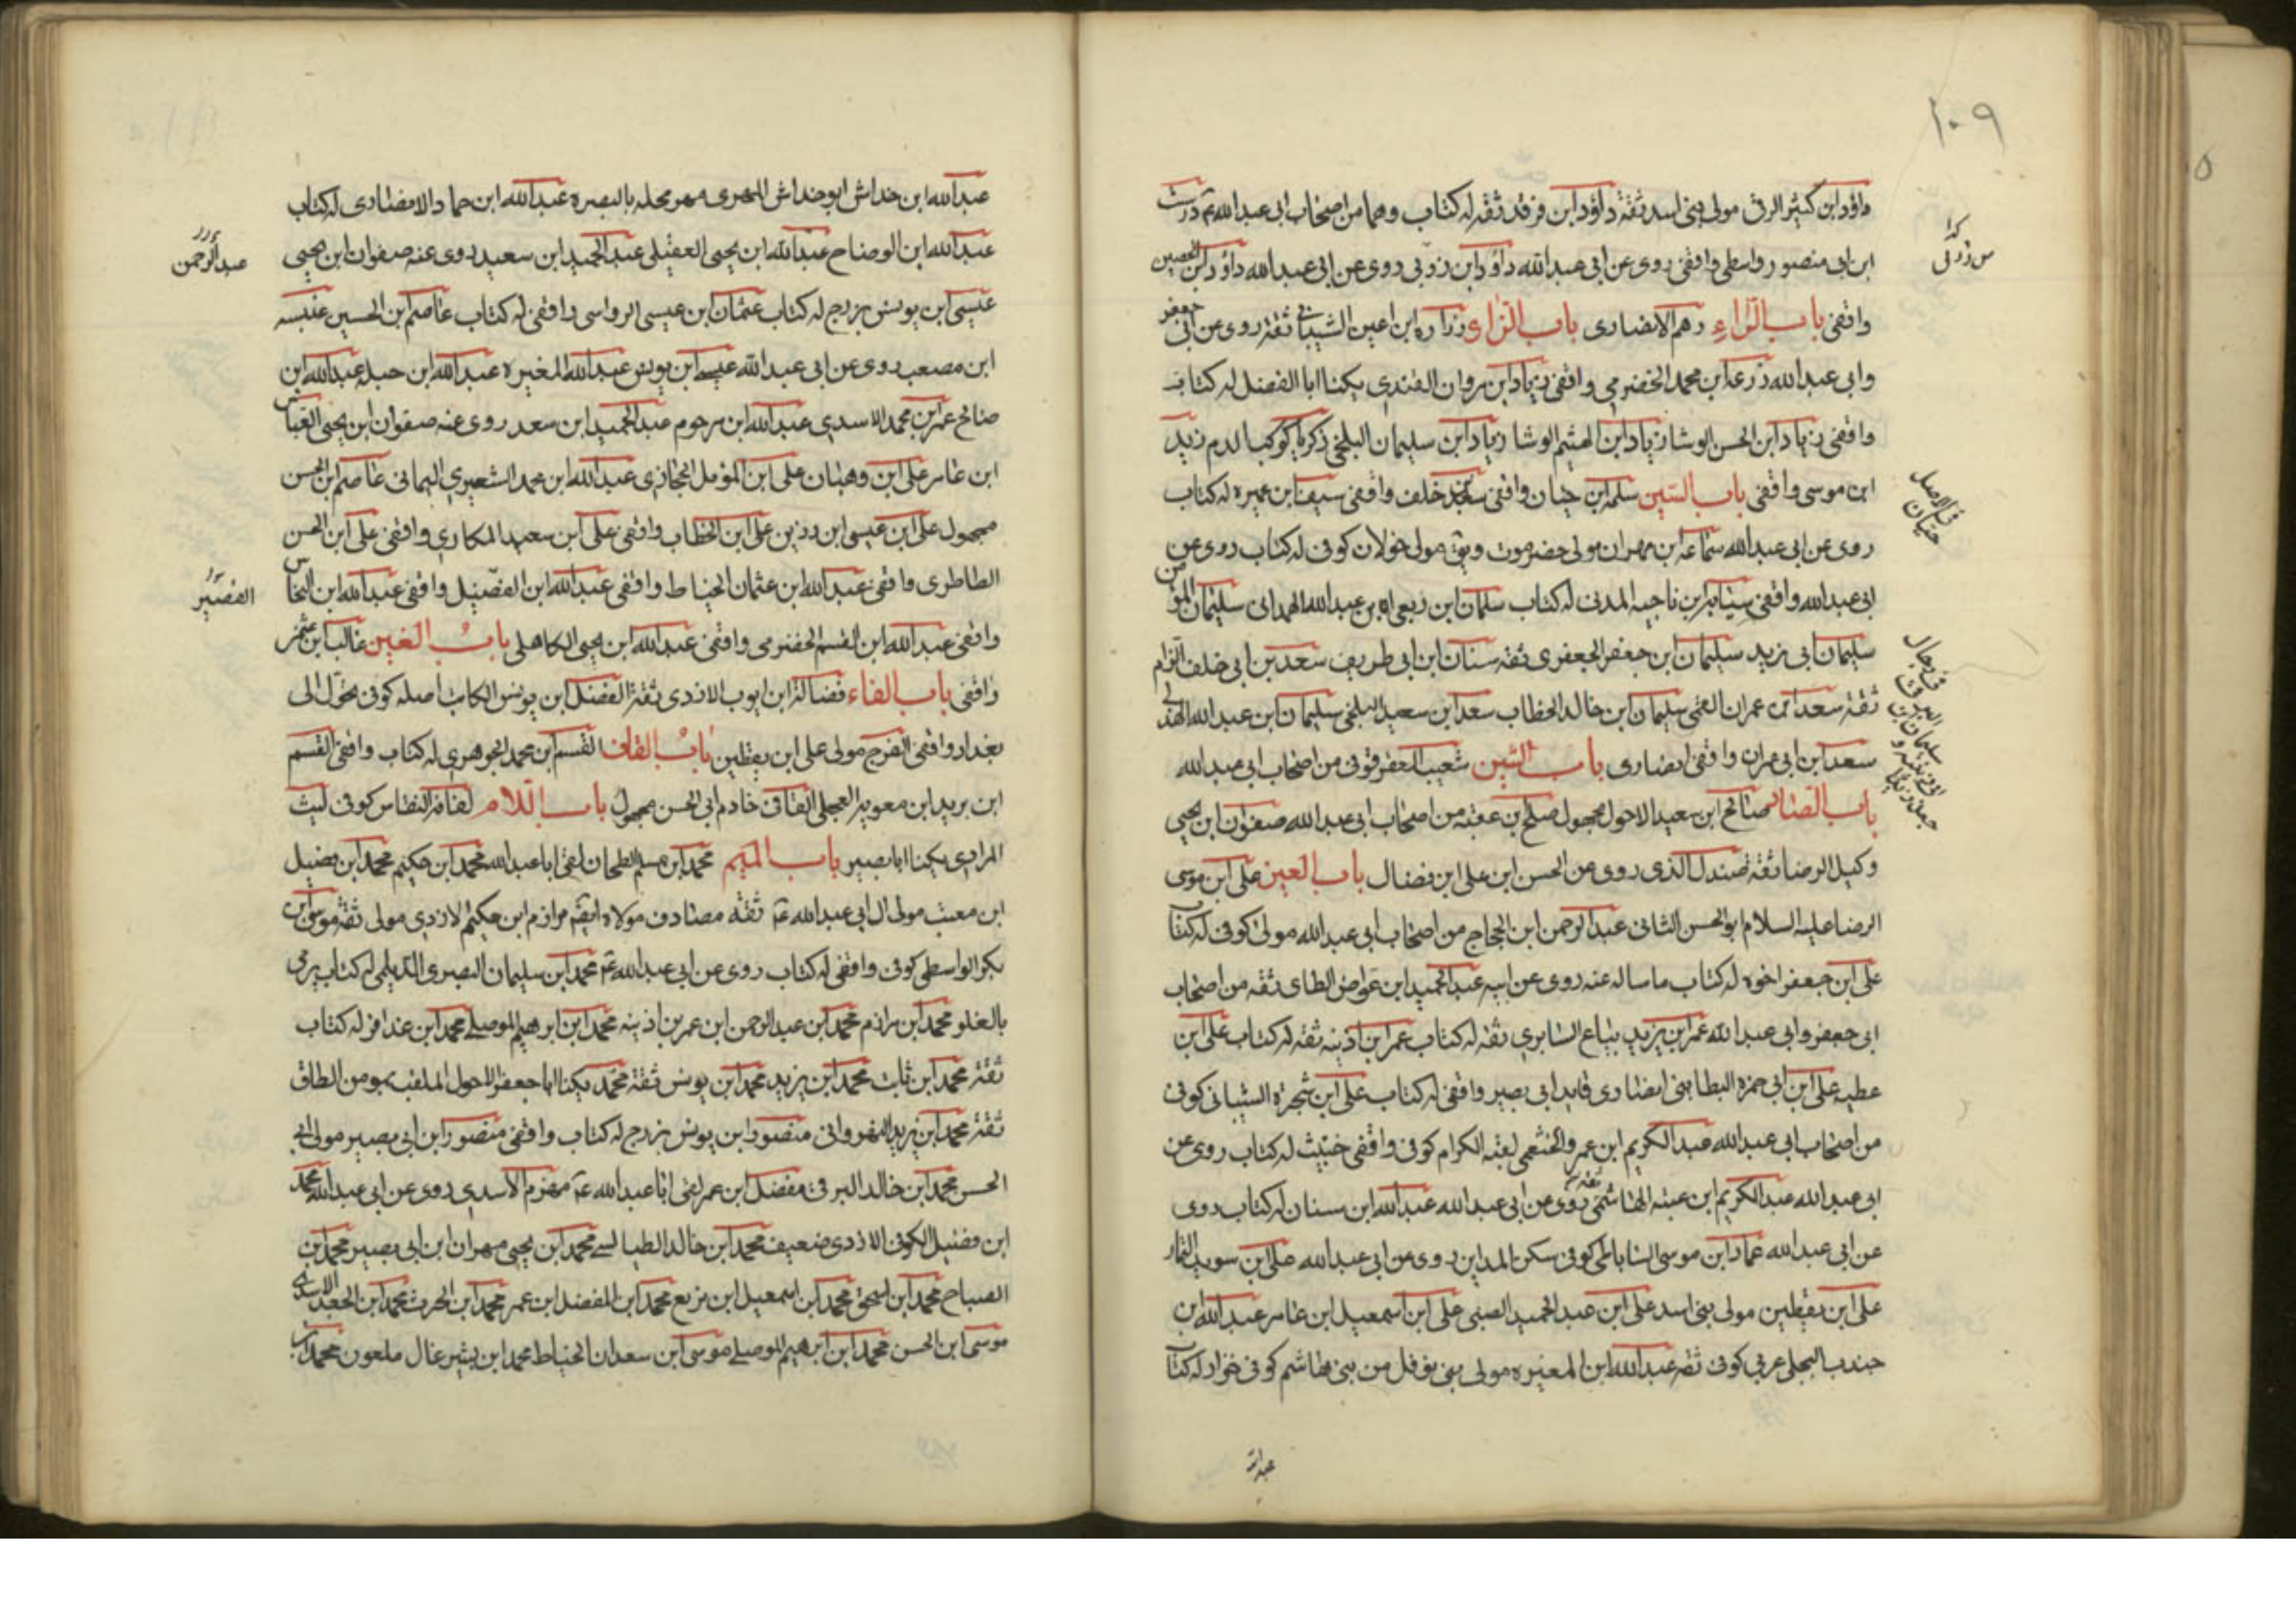 ١٠٩
داود ابن كثير الرقى مولى بنى اسد ثقة داود ابن فرقد ثقه له كتاب وهما من اصحاب ابى عبدالله درست
ابن ابى منصور واسطى واقفى روى عن ابى عبدالله داود ابن زربى روى عن ابى عبدالله داود ابن الحصين
واقفى باب الراء رهم الانصارى باب الزاء زراره ابن اعين الشيبانى ثقة روى عن ابى جعفر
وابى عبدالله زرعة ابن محمد الحضرمى واقفى زياد ابن مروان القندى يكنا ابا الفضل له كتاب
واقفى زياد ابن الحسن الوشا زياد ابن الهيثم الوشا زياد ابن سليمان البلخى زكريا كوكب الدم زيد
ابن موسى واقفى باب السين سلمة ابن حيان واقفى سعد خلف واقفى سيف ابن عميره له كتاب
روى عن ابى عبدالله سماعه ابن مهران مولى حضرموت ويق مولى خولان كوفى له كتاب روى عن
ابى عبدالله واقفى ابن ناجيه المدنى له كتاب سلمان ابن ربعى ابن عبدالله الهمدانى سليمان المؤمن
سليمان ابى زيد سليمان ابن جعفر الجعفرى ثقه سنان ابن ابى طريف سعد بن ابى خلف الزام
ثقة سعد ابن عمران القمى سليمان ابن خالد الخطاب سعد ابن سعيد البلخى سليمان ابن عبدالله
سعد ابن ابى عمران واقفى انصارى باب الشين شعيب العقرقوفى من اصحاب ابى عبدالله
باب الصاد صالح ابن سعيد الاحول مجهول صلح بن عقبه من اصحاب ابى عبدالله صفوان ابن يحيى
وكيل الرضا ثقة صندل الذى روى عن الحسن ابن على ابن فضال باب العين على ابن موسى
الرضا عليه السلام ابو الحسن الثانى عبدالرحمن ابن الحجاج من اصحاب ابى عبدالله مولى كوفى له كتاب
على ابن جعفر اخوه له كتاب ما ساله عنه روى عن ابيه عبدالحميد ابن عواض الطاى ثقه من اصحاب
ابى جعفر وابى عبدالله عمر ابن يزيد بياع السابرى ثقه له كتاب عمر ابن اذينه ثقه له كتاب على ابن
عطيه على ابن ابى حمزه البطاينى انصارى قايد ابى بصير واقفى له كتاب على ابن شجرة الشيبانى كوفى
من اصحاب ابى عبدالله عبدالكريم ابن عمرو الخثعمى لقبه الكرام كوفى واقفى خبيث له كتاب روى عن
ابى عبدالله عبدالكريم ابن عتبه الهاشمى ثقة روى عن ابى عبدالله عبدالله ابن سنان له كتاب روى
عن ابى عبدالله عمار ابن موسى الساباطى كوفى سكن المداين روى عن ابى عبدالله على ابن سويد التمار
على ابن يقطين مولى بنى اسد على ابن عبدالحميد الضبى على ابن اسمعيل ابن عامر عبدالله ابن
جندب البجلى عربى كوفى ثقه عبدالله ابن المغيره مولى بنى نوفل من بنى هاشم كوفى خزاز له كتاب
عبدالله
فى الاصل
حنان
عبدالله ابن خداش ابو خداش المهرى مهر محله بالبصره عبدالله ابن حماد الانصارى له كتاب
عبدالله ابن الوضاح عبدالله ابن يحيى العقيلى عبدالحميد ابن سعيد روى عنه صفوان ابن يحيى
عيسى ابن يونس بزرج له كتاب عثمان ابن عيسى الرواسى واقفى له كتاب عاصم ابن الحسين عنبسه
ابن مصعب روى عن ابى عبدالله عيسى ابن يونس عبدالله المغيره عبدالله ابن جبله عبدالله ابن
صالح عمر ابن محمد الاسدى عبدالله ابن مرحوم عبدالحميد ابن سعد روى عنه صفوان ابن يحيى العباس
ابن عامر على ابن وهبان على ابن المؤمل الحجازى عبدالله ابن محمد الشعيرى اليمانى عاصم ابن الحسن
مجهول على ابن عيسى ابن رزين على ابن الخطاب واقفى على ابن سعيد المكارى واقفى على ابن الحسن
الطاطرى واقفى عبدالله ابن عثمان الحناط واقفى عبدالله ابن الفضيل واقفى عبدالله ابن النخاس
واقفى عبدالله ابن القسم الحضرمى واقفى عبدالله ابن يحيى الكاهلى باب الغين غالب ابن عثمن
واقفى باب الفاء فضالة ابن ايوب الازدى ثقة الفضل ابن يونس الكاتب اصله كوفى تحول الى
بغداد واقفى الفرج مولى على ابن يقطين باب القاف القسم ابن محمد الجوهرى له كتاب واقفى القسم
ابن بريد ابن معويه العجلى القافى خادم ابى الحسن مجهول باب اللام لفافة النقاس كوفى ليث
المرادى يكنا ابا بصير باب الميم محمد ابن مسلم الطحان لقى ابا عبدالله محمد ابن حكيم محمد ابن فضيل
ابن معتب مولى ال ابى عبدالله ثقة مصادف مولاه ايضا مرازم ابن حكيم الازدى مولى ثقة موسى ابن
بكر الواسطى كوفى واقفى له كتاب روى عن ابى عبدالله محمد ابن سليمان البصرى الديلمى له كتاب يرمى
بالغلو محمد ابن مرازم محمد ابن عبدالرحمن ابن عمر بن اذينه محمد ابن ابرهيم الموصلى محمد ابن عذافر له كتاب
ثقة محمد ابن ثابت محمد ابن يزيد محمد ابن يونس ثقة محمد يكنا ابا جعفر الاحول الملقب بمومن الطاق
ثقة محمد ابن يزيد النهروانى منصور ابن يونس بزرج له كتاب واقفى منصور ابن ابى بصير مولى ابى
الحسن محمد ابن خالد البرقى مفضل ابن عمر لقى ابا عبدالله مهزم الاسدى روى عن ابى عبدالله محمد
ابن فضيل الكوفى الازدى ضعيف محمد ابن خالد الطيالسى محمد ابن يحيى مهران ابن ابى بصير محمد ابن
الصباح محمد ابن اسحق محمد ابن اسمعيل ابن بزيع محمد ابن المفضل ابن عمر محمد ابن الحرث محمد ابن الجعد الاسدى
موسى ابن الحسن محمد ابن ابرهيم الموصلى موسى ابن سعدان الحناط محمد ابن بشير غال ملعون محمد ابن
عبدالرحمن
القصير